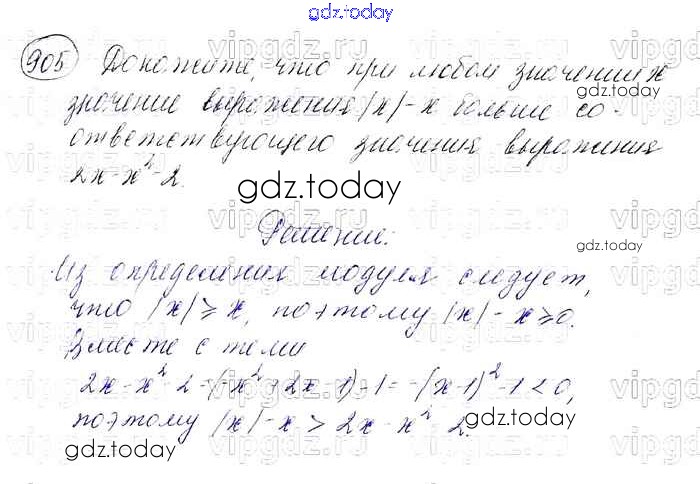 gdz.today
905 Докажите, что при любом значении x
gdz.today
значение выражения |x|-x больше со-
ответствующего значения выражения
2x-x²-2.
gdz.today
Решение.
gdz.today
Из определения модуля следует,
что |x|⩾x, поэтому |x|-x⩾0.
Вместе с тем
2x-x²-2=(-x²+2x-1)-1=-(x-1)²-1<0,
gdz.today
поэтому |x|-x>2x-x²-2.
gdz.today